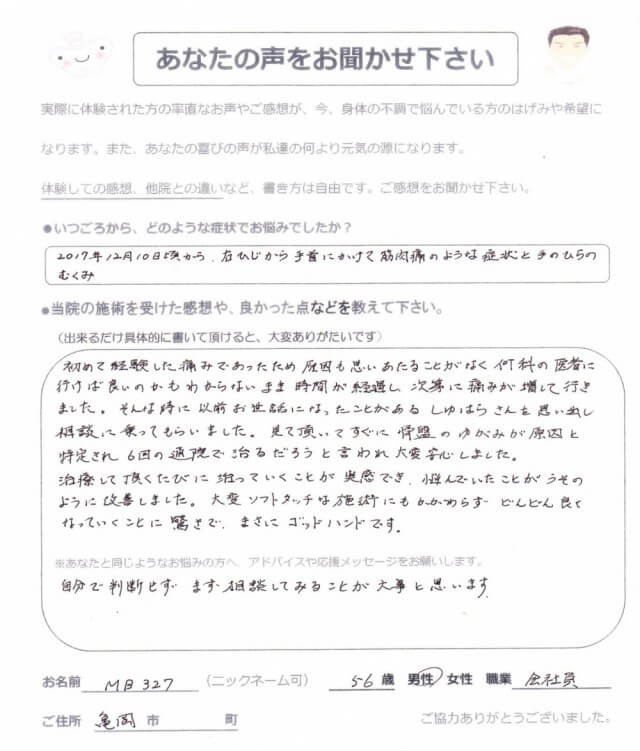 あなたの声をお聞かせ下さい
実際に体験された方の率直なお声やご感想が、今、身体の不調で悩んでいる方のはげみや希望に
なります。また、あなたの喜びの声が私達の何より元気の源になります。
体験しての感想、他院との違いなど、書き方は自由です。ご感想をお聞かせ下さい。
●いつごろから、どのような症状でお悩みでしたか？
2017年12月10日頃から、右ひじから手首にかけて筋肉痛のような症状と手のひらの
むくみ
●当院の施術を受けた感想や、良かった点などを教えて下さい。
（出来るだけ具体的に書いて頂けると、大変ありがたいです）
初めて経験した痛みであったため原因も思いあたることがなく何科の医者に
行けば良いのかもわからないまま時間が経過し、次第に痛みが増して行き
ました。そんな時に以前お世話になったことがあるしゅはらさんを思い出し
相談に乗ってもらいました。見て頂いてすぐに骨盤のゆがみが原因と
特定され6回の通院で治るだろうと言われ大変安心しました。
治療して頂くたびに治っていくことが実感でき、悩んでいたことがうその
ように改善しました。大変ソフトタッチな施術にもかかわらずどんどん良く
なっていくことに驚きで、まさにゴッドハンドです。
※あなたと同じようなお悩みの方へ、アドバイスや応援メッセージをお願いします。
自分で判断せずまず相談してみることが大事と思います
お名前 MB327 （ニックネーム可） 56歳 男性 女性 職業 会社員
ご住所 亀岡 市 町 ご協力ありがとうございました。